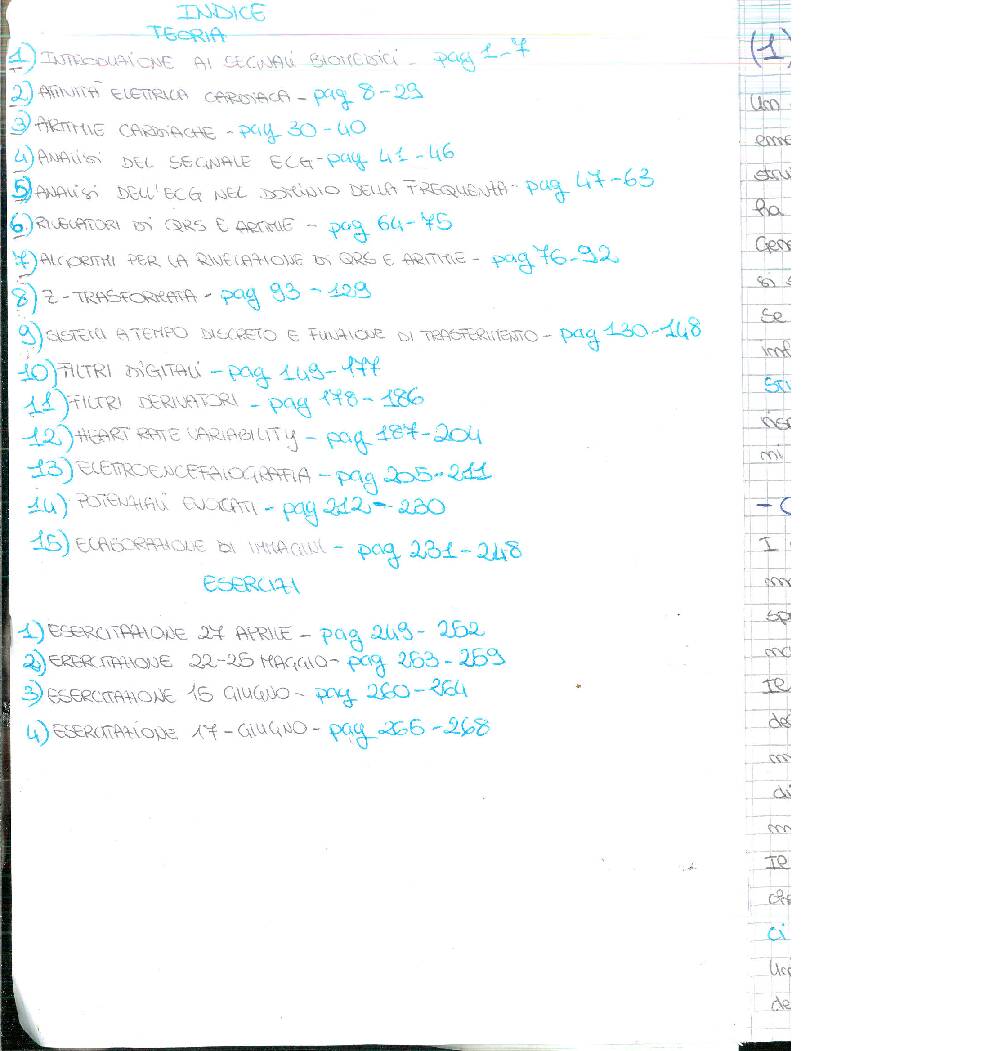 INDICE
TEORIA
1) INTRODUZIONE AI SEGNALI BIOMEDICI - pag 1-7
2) ATTIVITÀ ELETTRICA CARDIACA - pag 8-29
3) ARITMIE CARDIACHE - pag 30-40
4) ANALISI DEL SEGNALE ECG - pag 41-46
5) ANALISI DELL'ECG NEL DOMINIO DELLA FREQUENZA - pag 47-63
6) RIVELATORI DI QRS E ARITMIE - pag 64-75
7) ALGORITMI PER LA RIVELAZIONE DI QRS E ARITMIE - pag 76-92
8) Z-TRASFORMATA - pag 93-129
9) SISTEMI A TEMPO DISCRETO E FUNZIONE DI TRASFERIMENTO - pag 130-148
10) FILTRI DIGITALI - pag 149-177
11) FILTRI DERIVATORI - pag 178-186
12) HEART RATE VARIABILITY - pag 187-204
13) ELETTROENCEFALOGRAFIA - pag 205-211
14) POTENZIALI EVOCATI - pag 212-230
15) ELABORAZIONE DI IMMAGINI - pag 231-248
ESERCIZI
1) ESERCITAZIONE 27 APRILE - pag 249-252
2) ESERCITAZIONE 22-25 MAGGIO - pag 253-259
3) ESERCITAZIONE 15 GIUGNO - pag 260-264
4) ESERCITAZIONE 17-GIUGNO - pag 265-268
(1)
Un
ha
si
se
I
di
ci
de